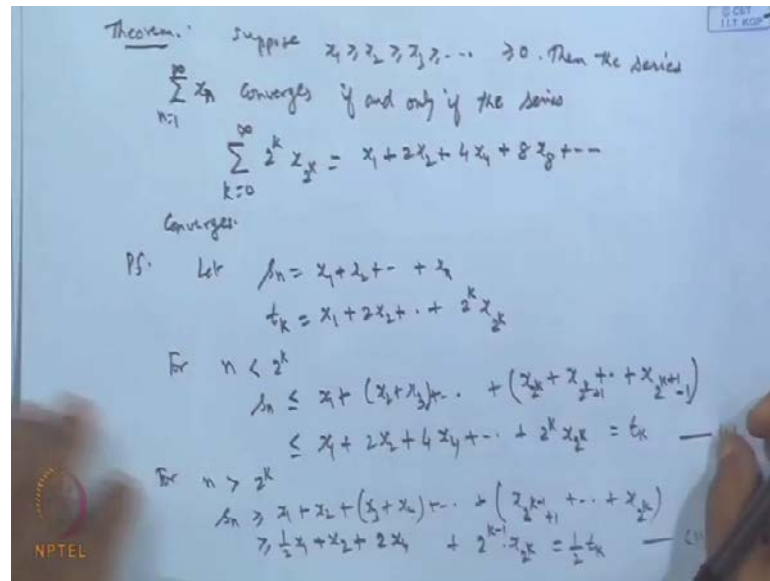 © CET
I.I.T. KGP
Theorem. Suppose x₁ ≥ x₂ ≥ x₃ ≥ ... ≥ 0. Then the series
∑_{n=1}^{∞} xₙ converges if and only if the series
∑_{k=0}^{∞} 2^k x_{2^k} = x₁ + 2x₂ + 4x₄ + 8x₈ + ---
Converges.
Pf. Let sₙ = x₁ + x₂ + -- + xₙ
t_k = x₁ + 2x₂ + .. + 2^k x_{2^k}
For n < 2^k
sₙ ≤ x₁ + (x₂ + x₃) + .. + (x_{2^k} + x_{2^k+1} + .. + x_{2^{k+1}-1})
≤ x₁ + 2x₂ + 4x₄ + -- + 2^k x_{2^k} = t_k —
For n > 2^k
sₙ ≥ x₁ + x₂ + (x₃ + x₄) + -.. + (x_{2^{k-1}+1} + -.. + x_{2^k})
≥ ½x₁ + x₂ + 2x₄ + 2^{k-1} · x_{2^k} = ½ t_k —
NPTEL